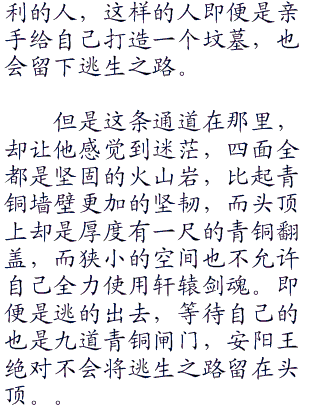 利的人，这样的人即便是亲
手给自己打造一个坟墓，也
会留下逃生之路。
但是这条通道在那里，
却让他感觉到迷茫，四面全
都是坚固的火山岩，比起青
铜墙壁更加的坚韧，而头顶
上却是厚度有一尺的青铜翻
盖，而狭小的空间也不允许
自己全力使用轩辕剑魂。即
便是逃的出去，等待自己的
也是九道青铜闸门，安阳王
绝对不会将逃生之路留在头
顶。。